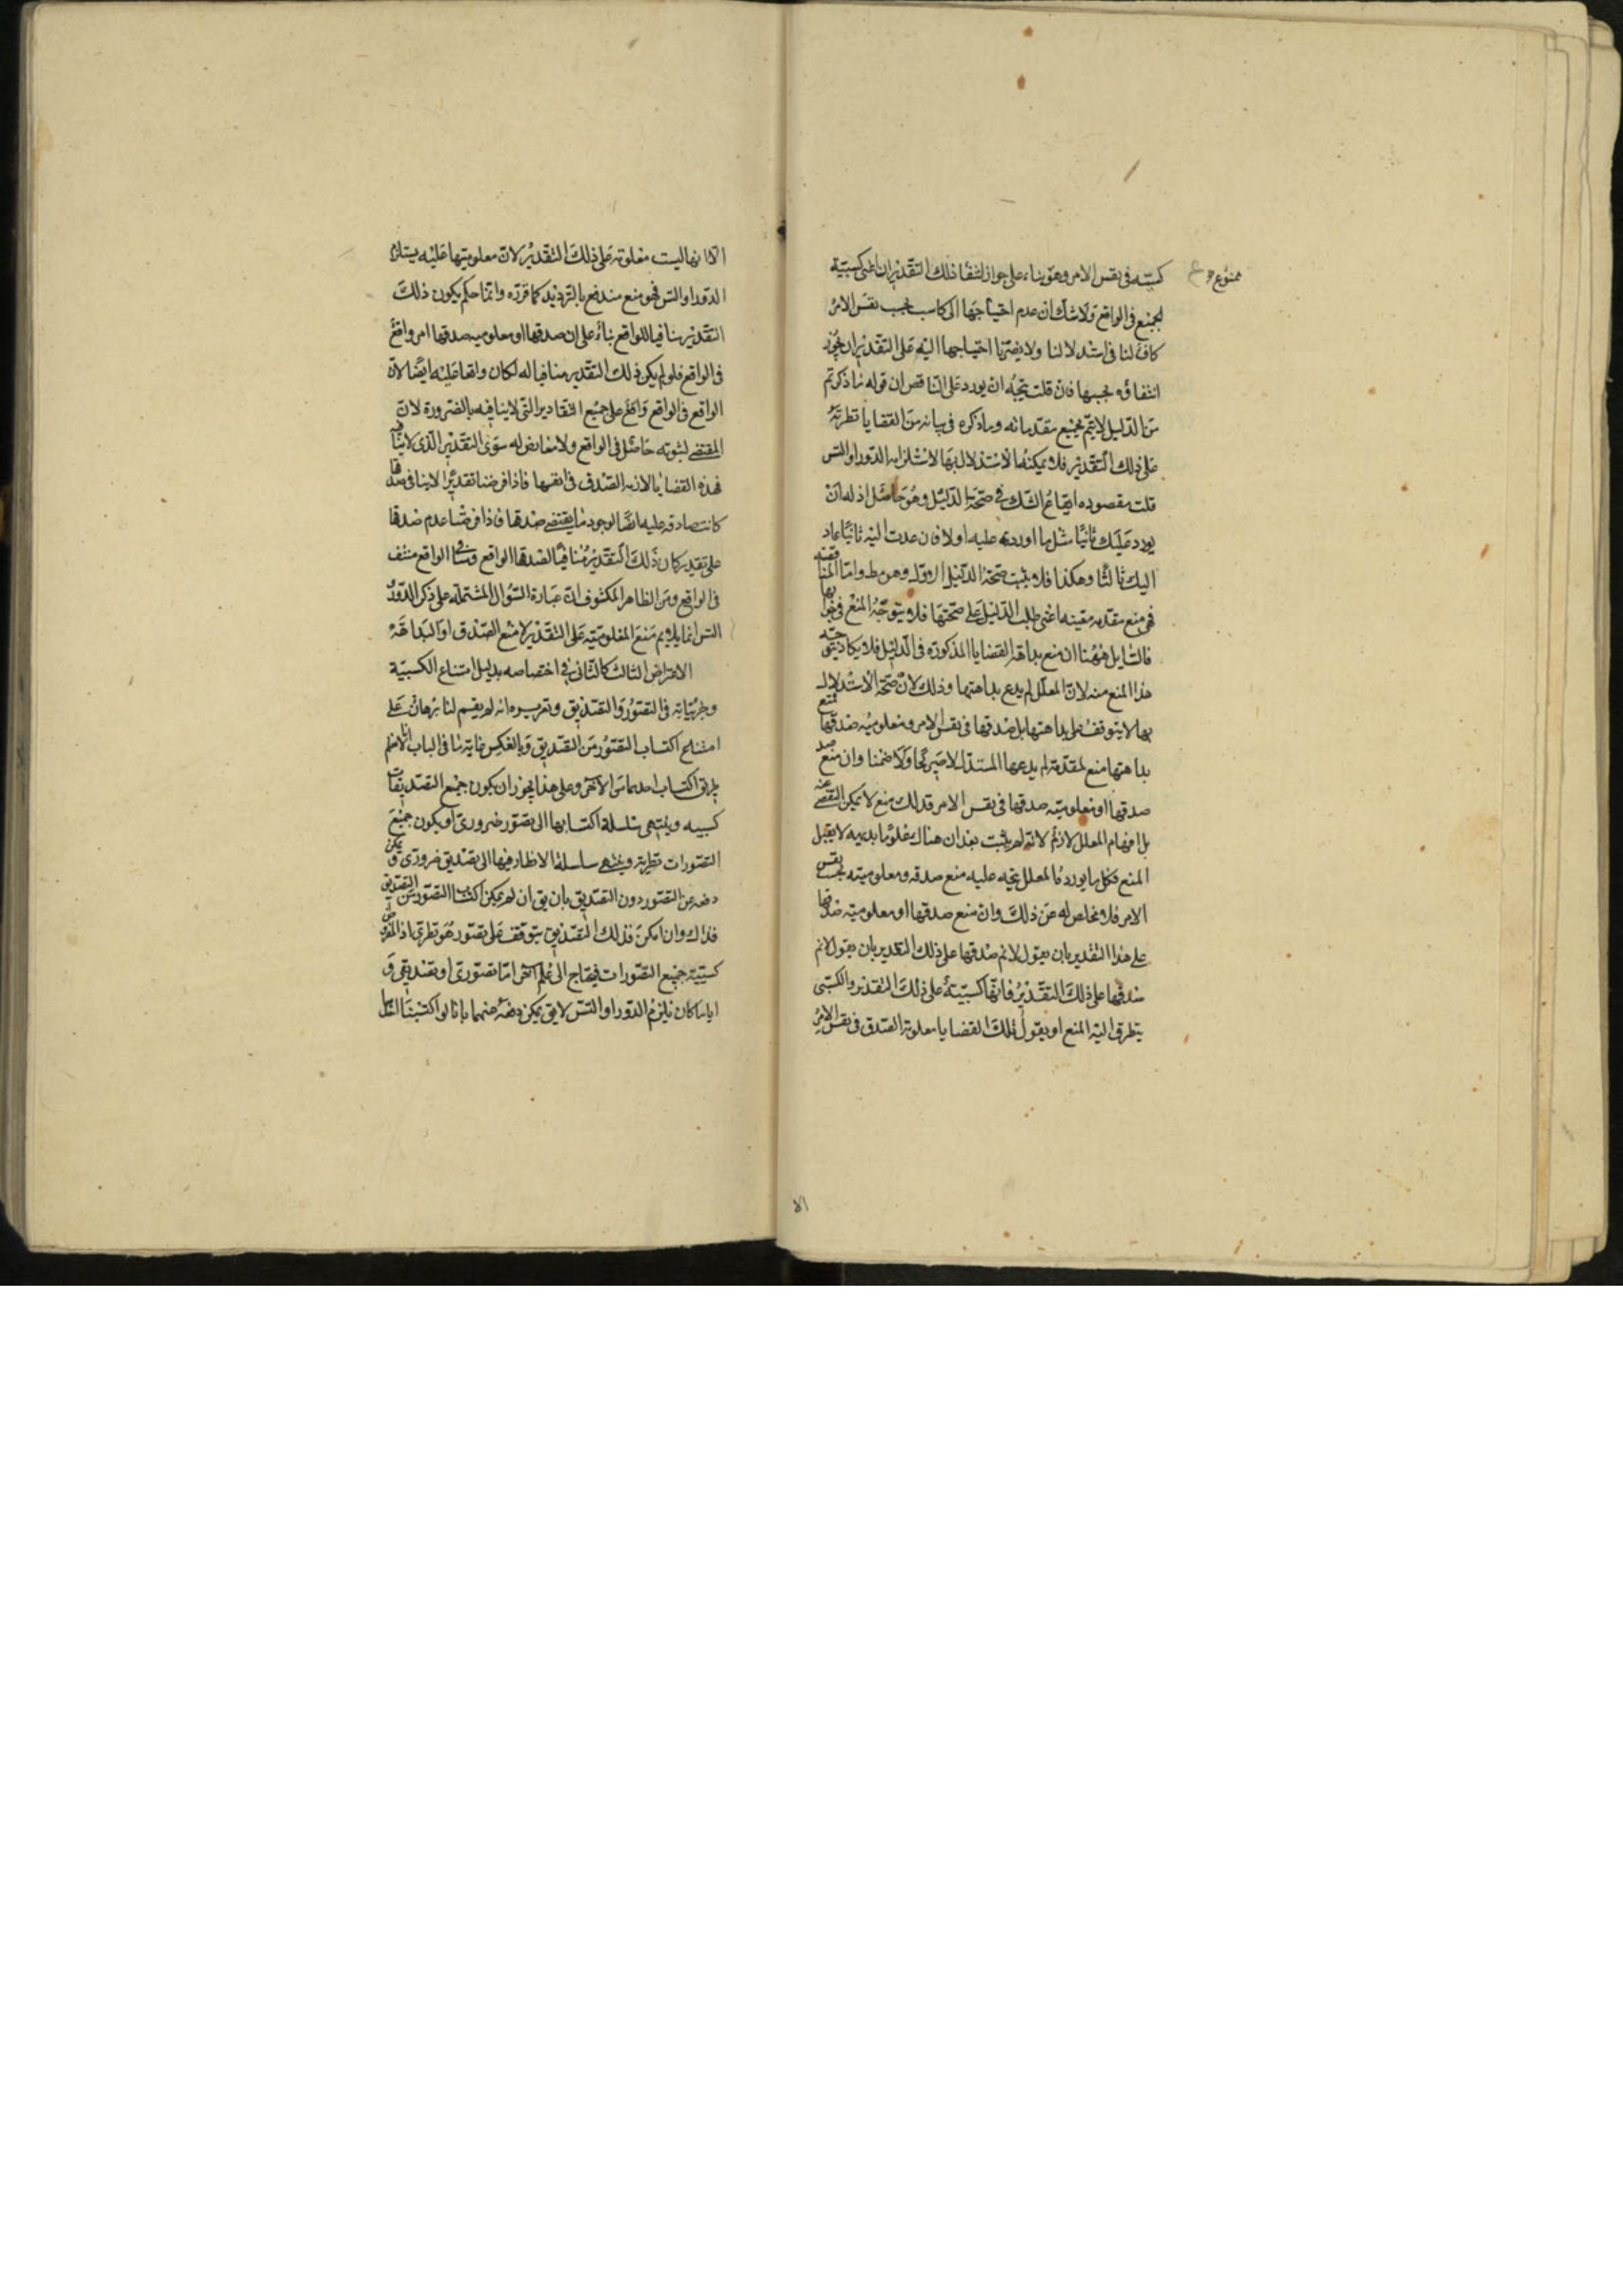 ممنوع
كسبية في نفس الامر وهو بناء على جواز انتفاء ذلك التقدير اعنى كسبية
الجميع في الواقع ولا شك ان عدم احتياجها الى كاسب بحسب نفس الامر
كاف لنا في استدلالنا ولا يضرنا احتياجها اليه على التقدير ان يجوز
انتفاؤه بحسبها فان قلت يتجه ان يورد على الناقض ان قوله ما ذكرتم
من الدليل لا يتم بجميع مقدماته وما ذكره في بيانه من القضايا نظرية
على ذلك التقدير فلا يمكنه الاستدلال بها لاستلزامه الدور او التس
قلت مقصوده ايقاع الشك في صحة الدليل وهو حاصل اذ له ان
يورد عليك ثانيا مثل ما اورده عليه اولا فان عدت اليه ثانيا عاد
اليك ثالثا وهكذا فلا يثبت صحة الدليل الاول وهو مط واما المناقضة
فهى منع مقدمه معينه اعنى طلب الدليل على صحتها فلا يتوجه المنع في جوابها
فالسايل ههنا ان منع بداهة القضايا المذكورة في الدليل فلا يكاد يتجه
هذا المنع منه لان المعلل لم يدع بداهتها وذلك لان صحة الاستدلال
بها لا يتوقف على بداهتها بل صدقها في نفس الامر ومعلوميه صدقها فمنع
بداهتها منع لمقدمة لم يدعها المستدل لا صريحا ولا ضمنا وان منع
صدقها او معلوميته صدقها في نفس الامر فذلك منع لا يمكن التقصى عنه
بل افحام المعلل لازم لانه لم يثبت بعد ان هناك معلوما بديهيه لا يقبل
المنع فكل ما يورده المعلل يتجه عليه منع صدقه ومعلوميته بحسب نفس
الامر فلا مخلص له عن ذلك وان منع صدقها او معلوميته صدقها
على هذا التقدير بان يقول لا نم صدقها على ذلك التقدير بان يقول لا نم
صدقها على ذلك التقدير فانها كسبية على ذلك التقدير والكسبى
يتطرق اليه المنع او يقول تلك القضايا معلومة الصدق في نفس الامر
الا
الا انها ليست معلومة على ذلك التقدير لان معلوميتها عليه يستلزم
الدور او التس فهو منع مندفع بالترديد كما قرره وانما حكم بكون ذلك
التقدير منافيا للواقع بناء على ان صدقها او معلوميه صدقها امر واقع
في الواقع فلو لم يكن ذلك التقدير منافيا له لكان واقعا عليه ايضا لان
الواقع في الواقع واقع على جميع التقادير التى لا ينافيه بالضرورة لان
المقتضى لثبوته حاصل في الواقع ولا معارض له سوى التقدير الذى لا ينافيه
فهذه القضايا لازمه الصدق في انفسها فاذا فرضنا تقديرا لا ينافى صدقها
كانت صادقه عليه ايضا لوجود ما يقتضى صدقها فاذا فرضنا عدم صدقها
على تقدير كان ذلك التقدير منافيا لصدقها الواقع ومنافى الواقع منتف
في الواقع ومن الظاهر المكشوف ان عبارة السؤال المشتملة على ذكر الدور
التس انما يلايم منع المعلومية على التقدير لا منع الصدق او البداهة
الاعتراض الثالث كالثانى في اختصاصه بدليل امتناع الكسبية
وجريانه في التصور والتصديق وتقريره انه لم يقم لنا برهان على
امتناع اكتساب التصور من التصديق وبالعكس غاية ما في الباب انا لا نعلم
طريق اكتساب احدهما من الاخر وعلى هذا يجوز ان يكون جميع التصديقات
كسبيه وينتهى سلسلة اكتسابها الى تصور ضرورى او يكون جميع
التصورات نظرية وينتهى سلسلة الانظار فيها الى تصديق ضرورى ويمكن
دفعه عن التصور دون التصديق بان يق ان لم يمكن اكتساب التصور من التصديق
فذاك وان امكن فذلك التصديق يتوقف على تصور هو نظرى اذ المفروض
كسبية جميع التصورات فيحتاج الى علم اخر اما تصورى او تصديقى و
اياما كان يلزم الدور او التس لا يق يمكن دفعه عنهما بانا لو اكتسبنا التصل